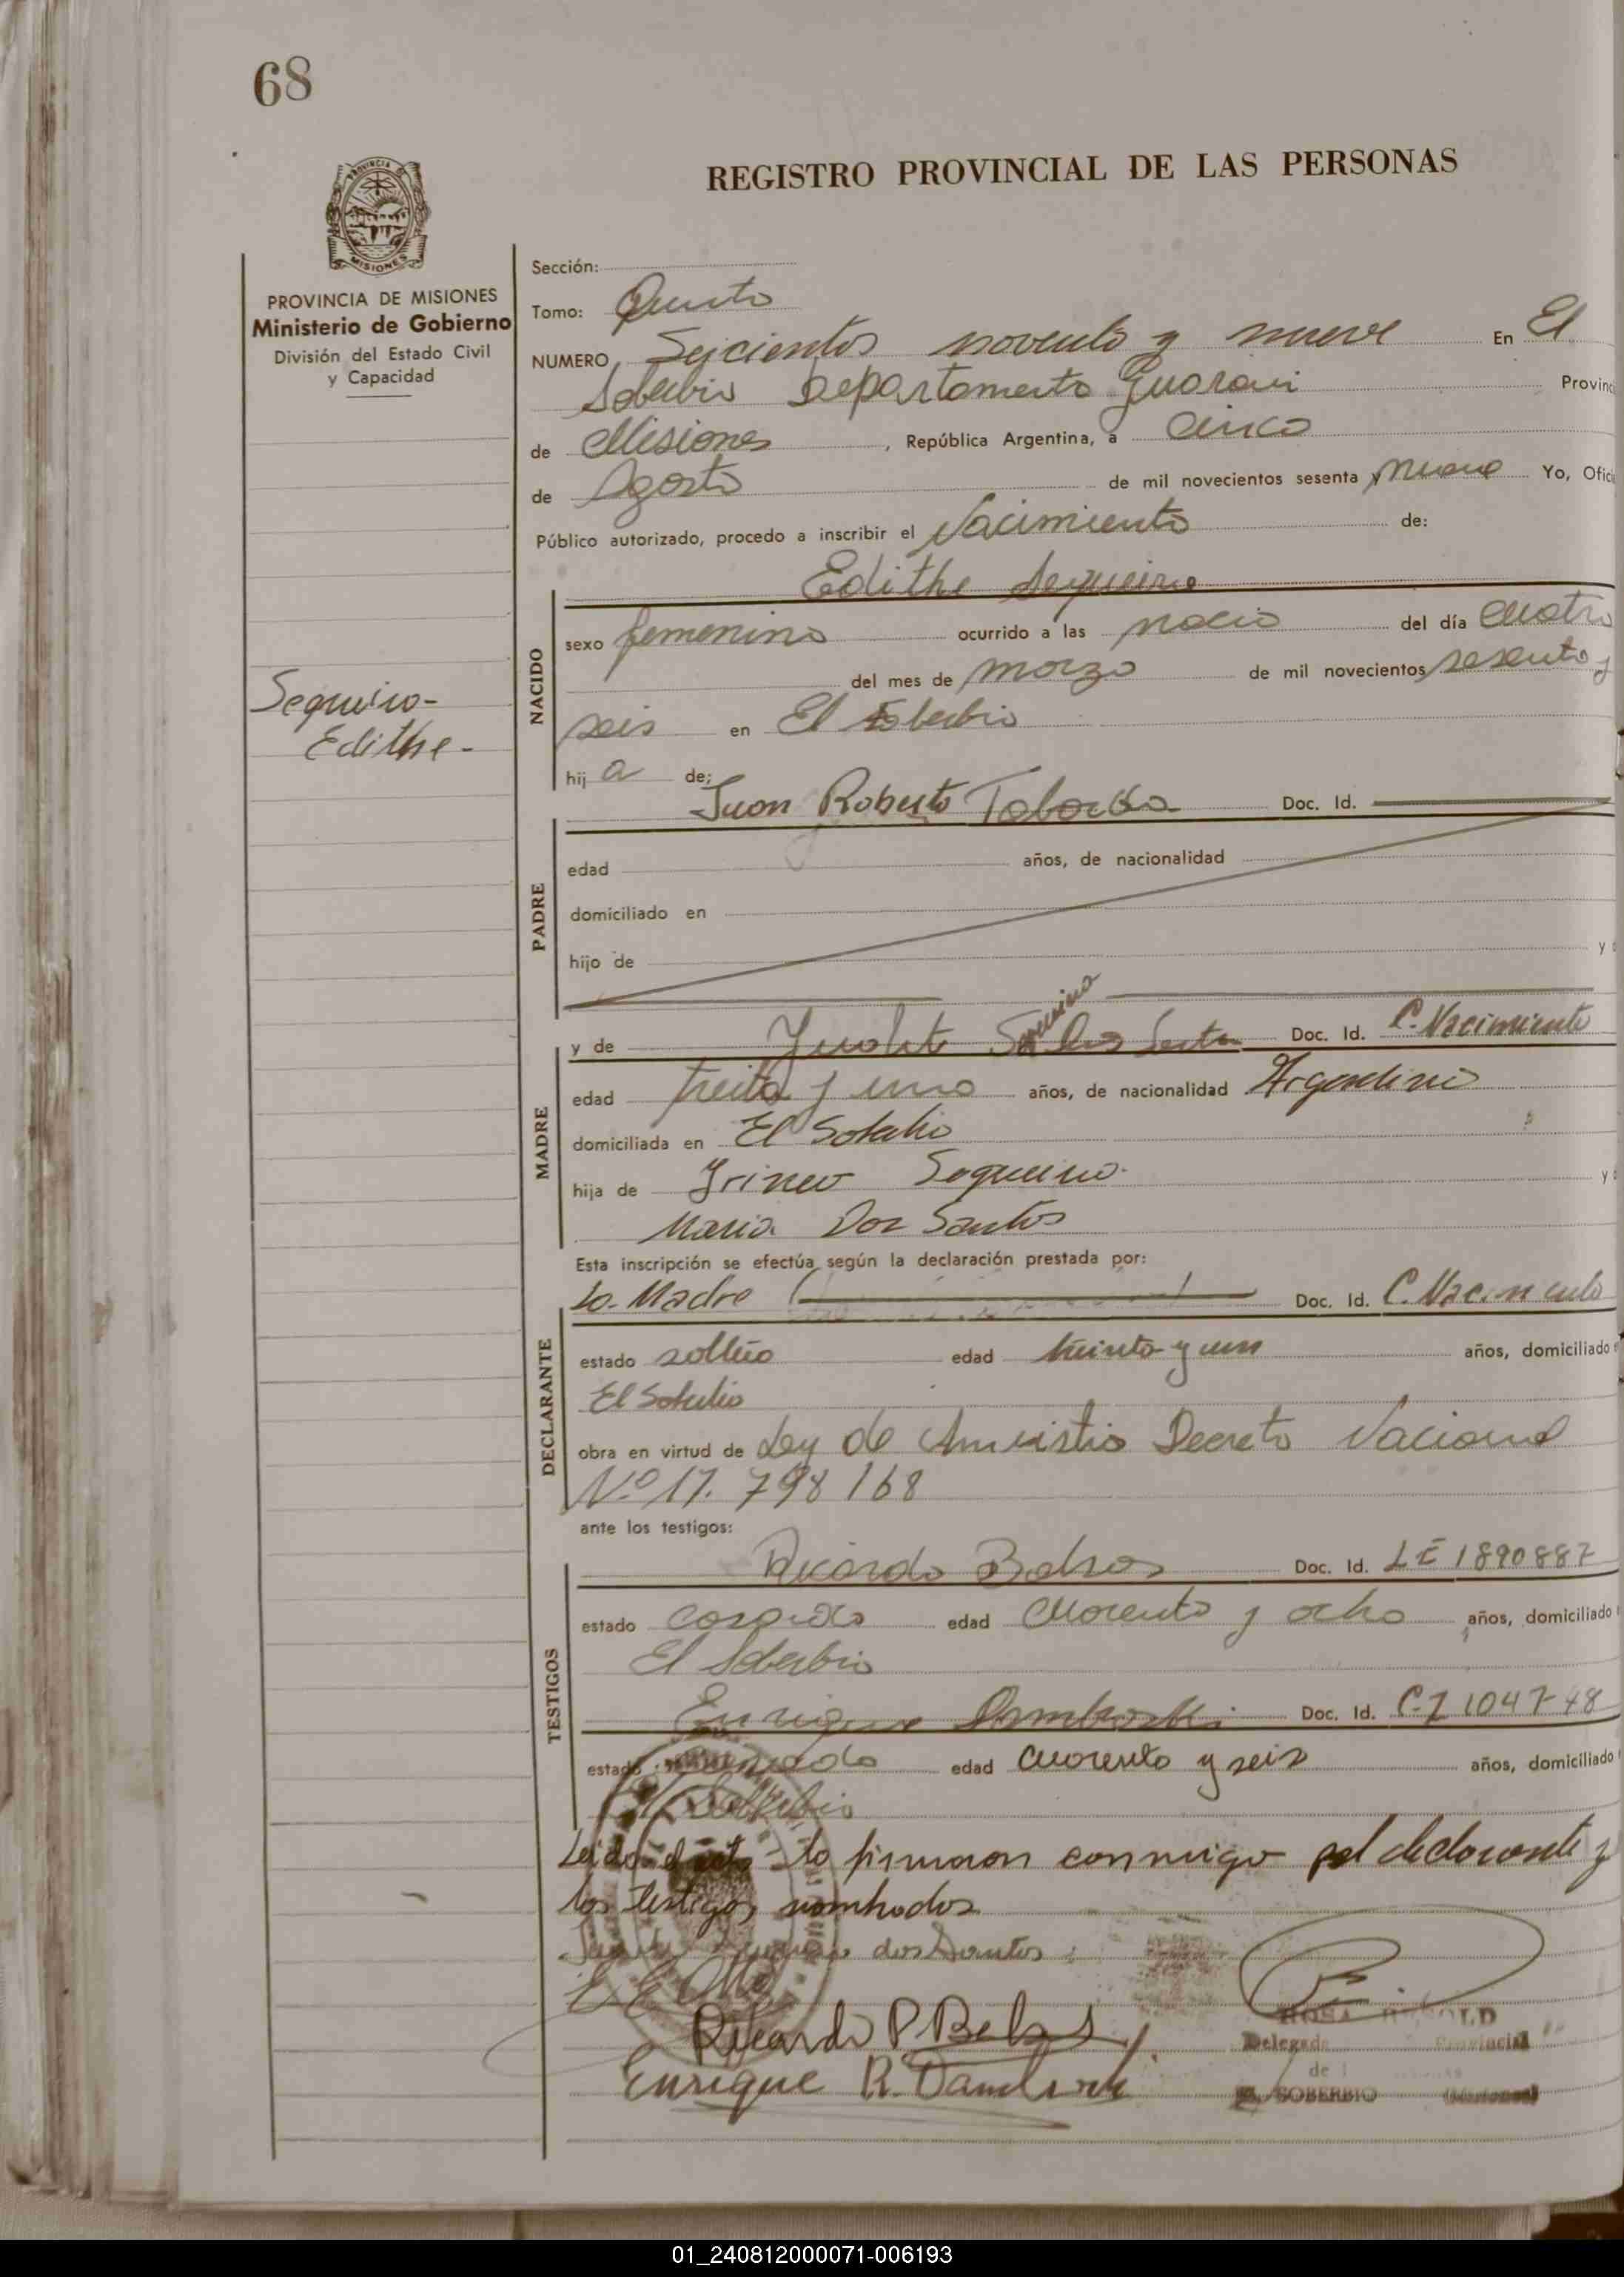 68
REGISTRO PROVINCIAL DE LAS PERSONAS
PROVINCIA
MISIONES
PROVINCIA DE MISIONES
Ministerio de Gobierno
División del Estado Civil
y Capacidad
Sección:
Tomo: Quinto
NUMERO Seiscientos noventa y nueve En El
Soberbio Departamento Guarani Provinc
de Misiones, República Argentina, a Cinco
de Agosto de mil novecientos sesenta y nueve Yo, Ofici
Público autorizado, procedo a inscribir el Nacimiento de:
Edithe Sequeira
NACIDO
sexo femenino ocurrido a las nacio del día cuatro
del mes de marzo de mil novecientos sesenta y
seis en El Soberbio
Sequeira-
Edithe-
hij a de;
Juan Roberto Taborda Doc. Id.
PADRE
edad años, de nacionalidad
domiciliado en
hijo de y
y de Doc. Id. C. Nacimiento
MADRE
edad treita y uno años, de nacionalidad Argentina
domiciliada en El Soberbio
hija de Irineo Sequeira y
Maria Dos Santos
Esta inscripción se efectúa según la declaración prestada por:
La Madre Doc. Id. C. Nacimiento
DECLARANTE
estado soltera edad treinta y un años, domiciliado
El Soberbio
obra en virtud de Ley de Amnistia Decreto Nacional
Nº 17. 798/68
ante los testigos:
Ricardo Doc. Id. LE 1890887
TESTIGOS
estado casado edad cuarenta y ocho años, domiciliado
El Soberbio
Enrique Doc. Id. C.I 1047748
estado edad cuarenta y seis años, domiciliado
El Soberbio
Leida el acta la firmaron conmigo el declarante y
los testigos nombrados
dos Santos
Ricardo P.
Enrique R.
ROSA
Delegada Provincial
de
EL SOBERBIO (Misiones)
01_240812000071-006193